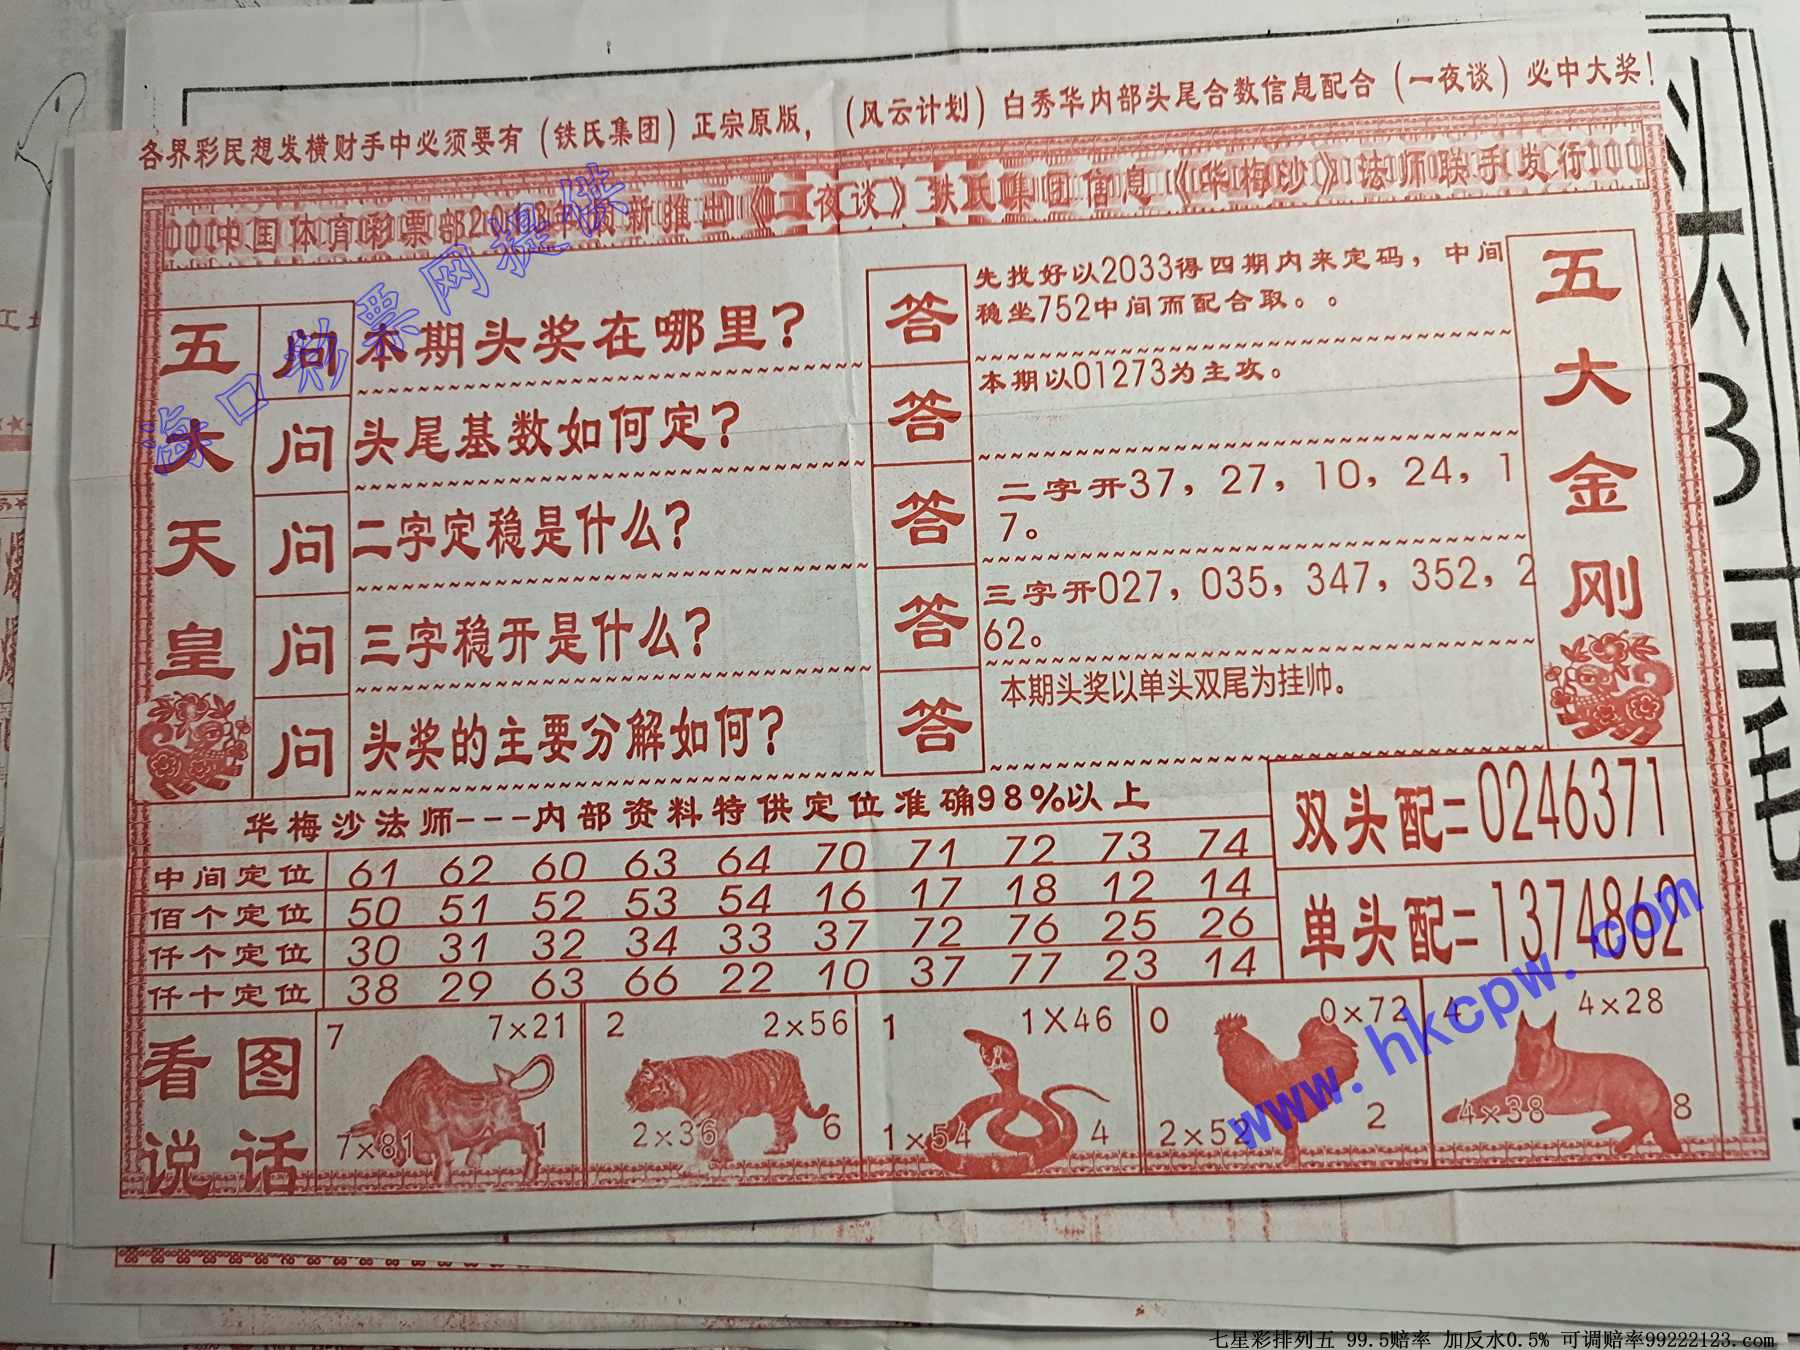 各界彩民想发横财手中必须要有（铁氏集团）正宗原版，（风云计划）白秀华内部头尾合数信息配合（一夜谈）必中大奖！
中国体育彩票部 新推出《 夜谈》 铁氏集团信息《华梅沙》法师联手发行
海口彩票网提供
五大天皇
问 本期头奖在哪里？
答 先找好以2033得四期内来定码，中间
稳坐752中间而配合取。。
问 头尾基数如何定？
答 本期以01273为主攻。
问 二字定稳是什么？
答 二字开37，27，10，24，1
7。
问 三字稳开是什么？
答 三字开027，035，347，352，2
62。
问 头奖的主要分解如何？
答 本期头奖以单头双尾为挂帅。
五大金刚
华梅沙法师---内部资料特供定位准确98%以上
中间定位 61 62 60 63 64 70 71 72 73 74
佰个定位 50 51 52 53 54 16 17 18 12 14
仟个定位 30 31 32 34 33 37 72 76 25 26
仟十定位 38 29 63 66 22 10 37 77 23 14
双头配=0246371
单头配=1374862
看图
说话
7 7×21
7×81 1
2 2×56
2×36 6
1 1×46
1×54 4
0 0×72
2×52 2
4 4×28
4×38 8
www.hkcpw.com
七星彩排列五 99.5赔率 加反水0.5% 可调赔率99222123.com